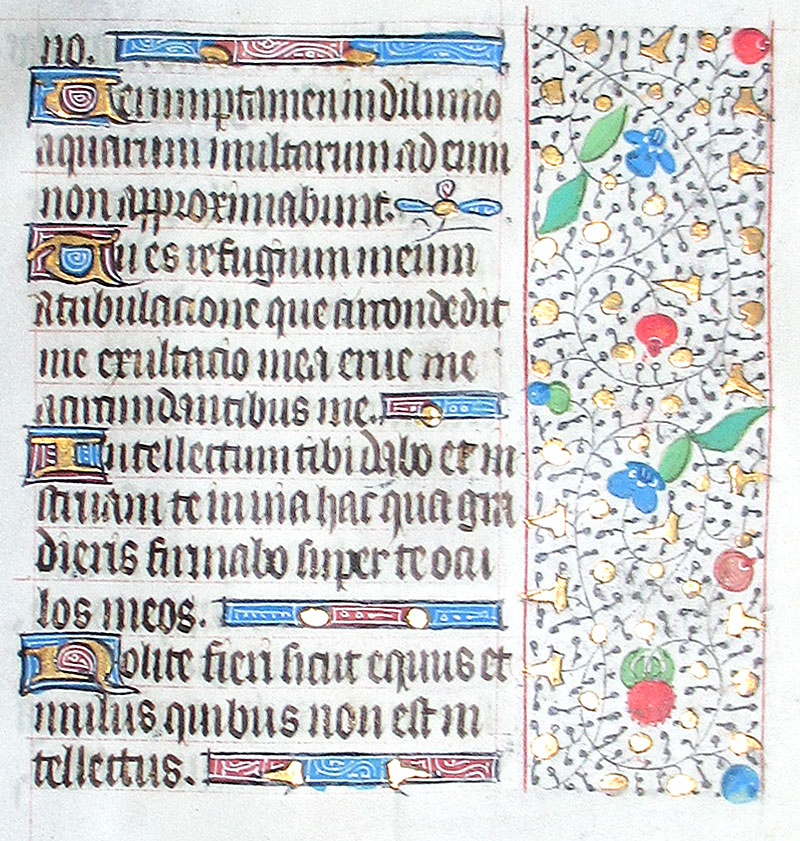 no.
Verumptamen in diluuio
aquarum multarum ad eum
non approximabunt.
Tu es refugium meum
a tribulacione que circondedit
me exultacio mea erue me
a circundantibus me.
Intellectum tibi dabo et in
struam te in uia hac qua gra
dieris firmabo super te ocu
los meos.
Nolite fieri sicut equus et
mulus quibus non est in
tellectus.